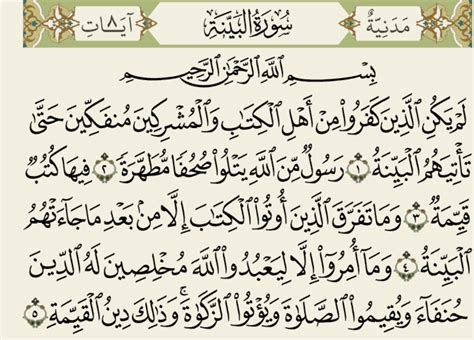 مَدَنِيَّةٌ سُورَةُ الْبَيِّنَة آيَاتٍ ٨
بِسْمِ اللَّهِ الرَّحْمَٰنِ الرَّحِيمِ
لَمْ يَكُنِ الَّذِينَ كَفَرُوا مِنْ أَهْلِ الْكِتَابِ وَالْمُشْرِكِينَ مُنفَكِّينَ حَتَّىٰ
تَأْتِيَهُمُ الْبَيِّنَةُ ١ رَسُولٌ مِّنَ اللَّهِ يَتْلُوا صُحُفًا مُّطَهَّرَةً ٢ فِيهَا كُتُبٌ
قَيِّمَةٌ ٣ وَمَا تَفَرَّقَ الَّذِينَ أُوتُوا الْكِتَابَ إِلَّا مِنْ بَعْدِ مَا جَاءَتْهُمُ
الْبَيِّنَةُ ٤ وَمَا أُمِرُوا إِلَّا لِيَعْبُدُوا اللَّهَ مُخْلِصِينَ لَهُ الدِّينَ
حُنَفَاءَ وَيُقِيمُوا الصَّلَوٰةَ وَيُؤْتُوا الزَّكَوٰةَ ۚ وَذَٰلِكَ دِينُ الْقَيِّمَةِ ٥